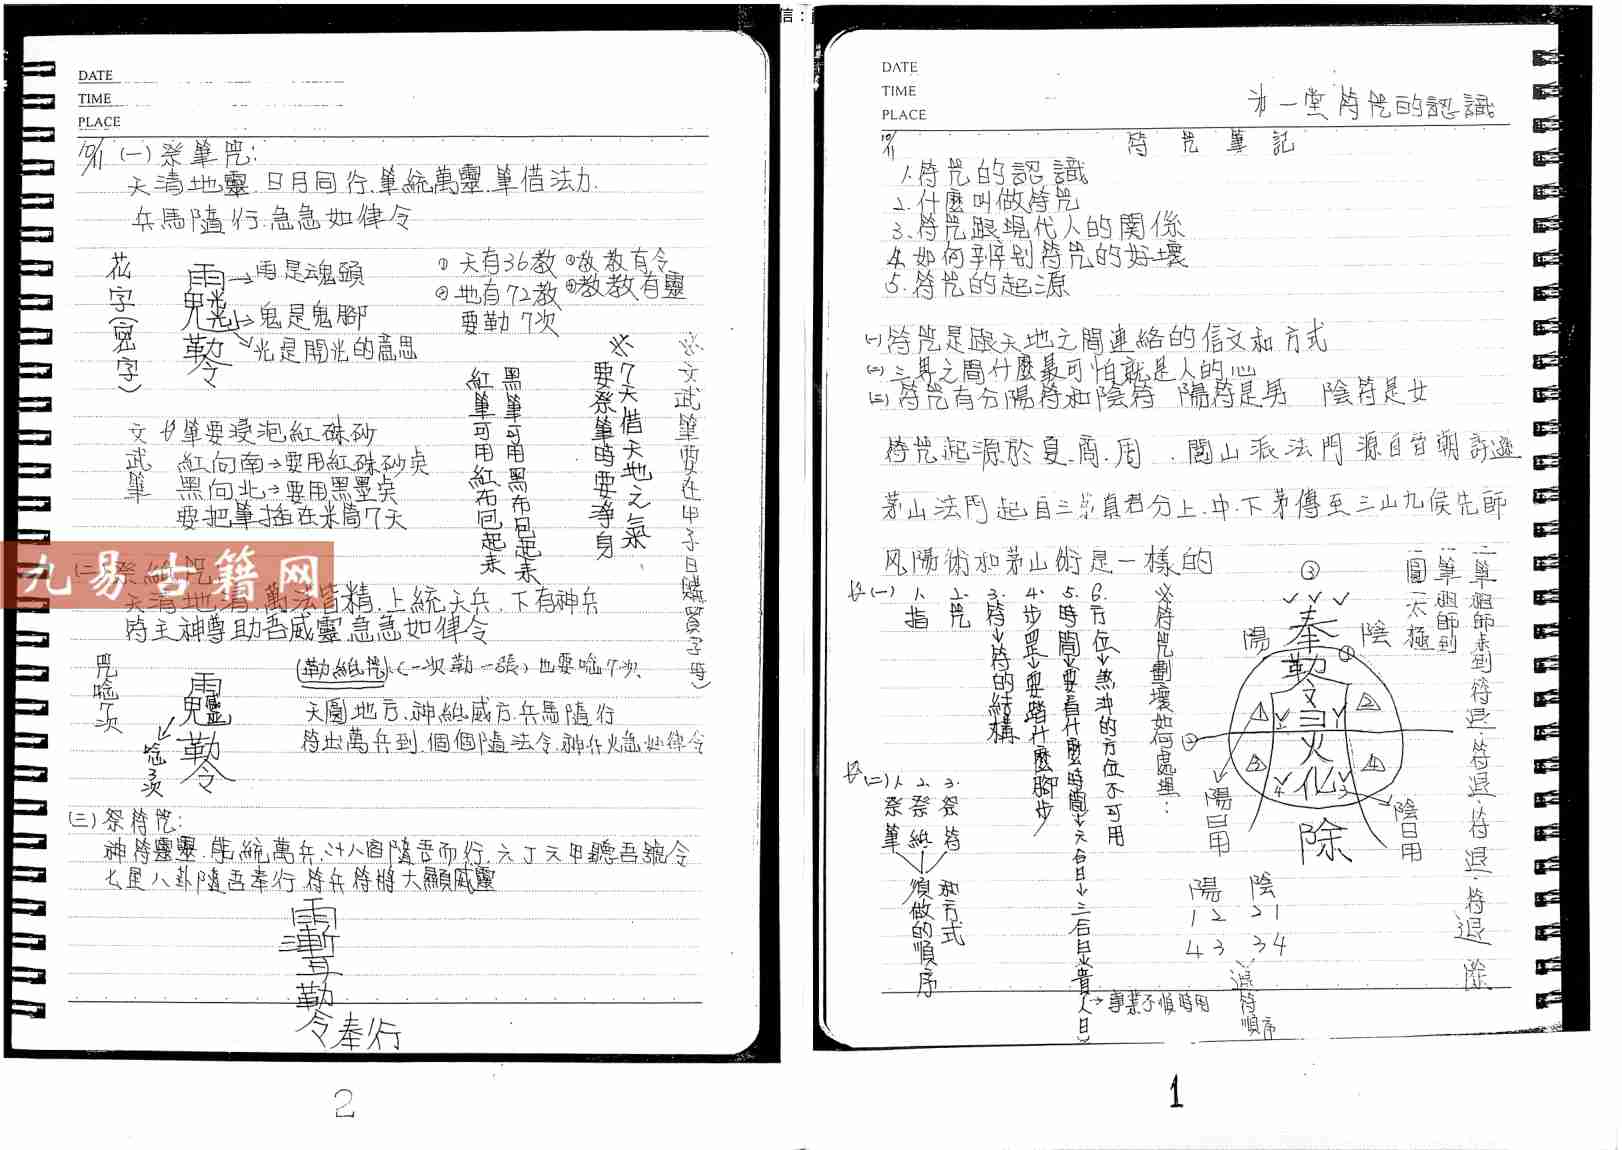 信：
DATE
TIME
PLACE
第一堂 符咒的認識
10/11 符咒筆記
1.符咒的認識
2.什麼叫做符咒
3.符咒跟現代人的關係
4.如何辨别符咒的好壞
5.符咒的起源
(一)符咒是跟天地之間連絡的信文和方式
(二)三界之間什麼最可怕就是人的心
(三)符咒有分陽符和陰符 陽符是男 陰符是女
符咒起源於夏.商.周.閭山派法門源自晉朝許遜
茅山法門起自三茅真君分上.中.下茅傳至三山九侯先師
风陽術和茅山術是一樣的
(一)
1.指
2.咒
3.符→符的結構
4.步罡→要踏什麼腳步
5.時間→要看什麼時間→六合日→三合日→貴人日→事業不順時用
6.方位→煞沖的方位不可用
※符咒劃壞如何處理：
(二)
1.祭筆
2.祭紙
3.祭符
須做的順序
和方式
一筆祖師未到符退.符退.符退.符退 除
一筆祖師到
一圓太極
③
陽 陰
奉
勒令
①
②
1 2
3 4
火化
除
陽日用
陰日用
陽 陰
12 21
43 34
退符順序
1
DATE
TIME
PLACE
10/11 (一)祭筆咒:
天清地靈.日月同行.筆統萬靈.筆借法力.
兵馬隨行.急急如律令
花字(密字)
雨→雨是魂頭
鬼是鬼腳
光是開光的意思
勒令
①天有36教 ③敬教有令
②地有72教 ④教教有靈
要勒7次
文武筆
筆要浸泡紅硃砂
紅向南→要用紅硃砂点
黑向北→要用黑墨点
要把筆插在米筒7天
紅筆可用紅布包起來
黑筆可用黑布包起來
※7天借天地之氣
要祭筆時要淨身
※文武筆要在甲子日購買(子時)
九易古籍网
(二)祭紙咒
天清地清.萬法皆精.上統天兵.下有神兵
符主神尊助吾威靈 急急如律令
咒唸7次
勒令
唸3次
(勒紙咒)(一次勒一張)也要唸7次
天圓地方.神紙威方.兵馬隨行
符出萬兵到.個個隨法令.神作火急如律令
(三)祭符咒:
神符靈靈.能統萬兵.廿八宿隨吾而行.六丁六甲聽吾號令
七星八卦隨吾奉行.符兵符將大顯威靈
勒
令奉行
2